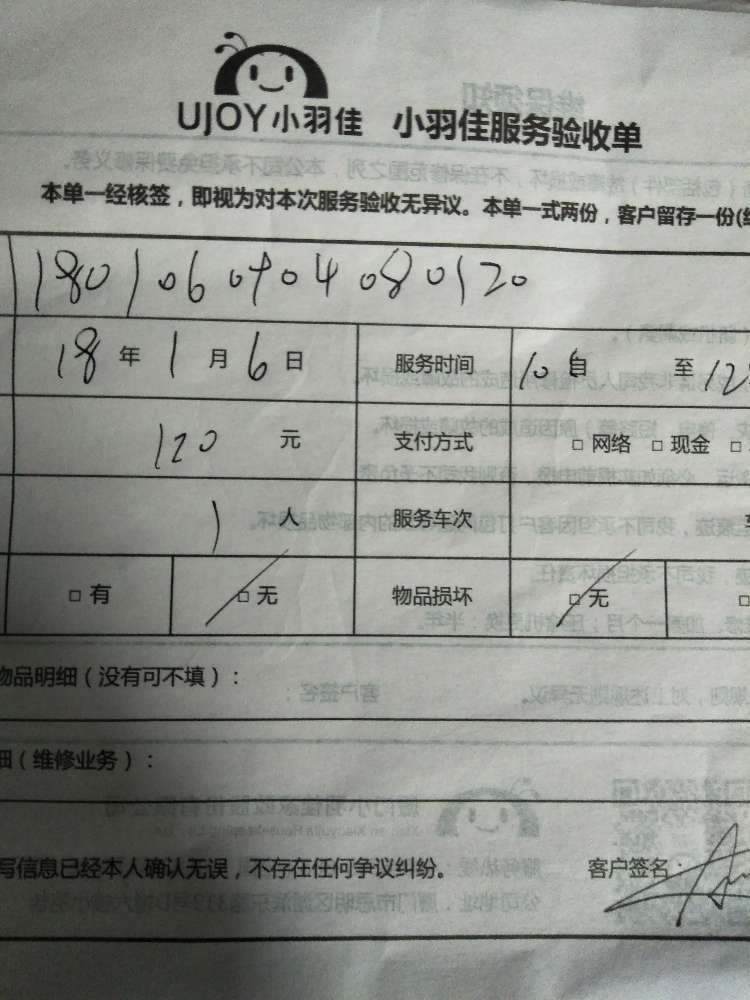 UJOY小羽佳 小羽佳服务验收单
本单一经核签，即视为对本次服务验收无异议。本单一式两份，客户留存一份(
1801060904080120
18年1月6日 服务时间 10自 至12
120 元 支付方式 □ 网络 □ 现金 □
1 人 服务车次
□ 有 □ 无 物品损坏 □ 无 □
物品明细（没有可不填）：
细（维修业务）：
写信息已经本人确认无误，不存在任何争议纠纷。 客户签名：